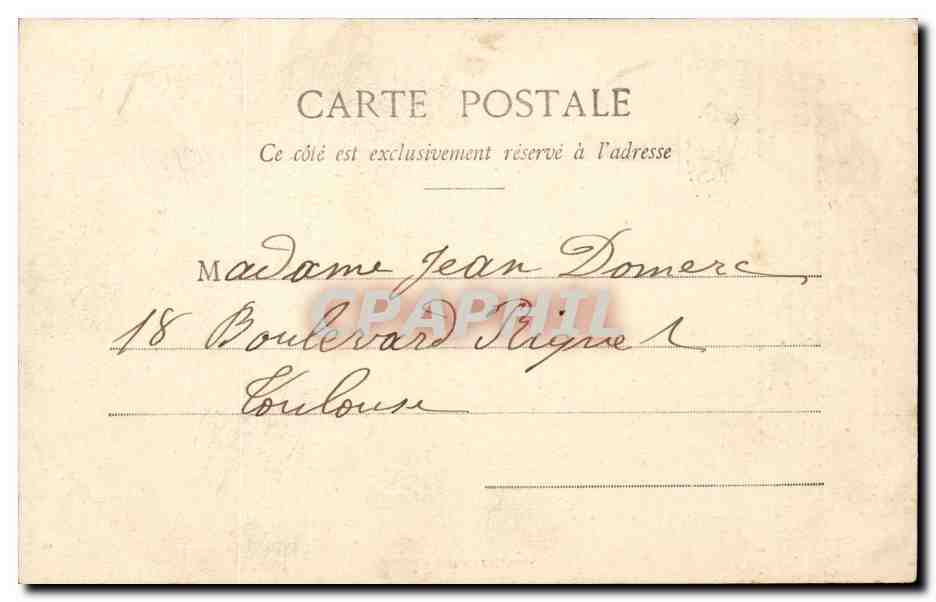 CARTE POSTALE
Ce côté est exclusivement réservé à l'adresse
Madame Jean Domerc
CPAPHIL
18 Boulevard Riquet
Toulouse